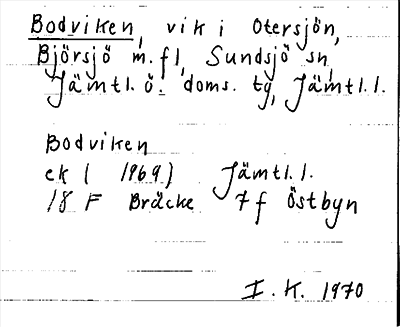 Bodviken, vik i Otersjön,
Björsjö m.fl, Sundsjö sn,
Jämtl. ö. doms. tg, Jämtl. l.
Bodviken
ek ( 1969) Jämtl. l.
18 F Bräcke 7 f Östbyn
I. K. 1970